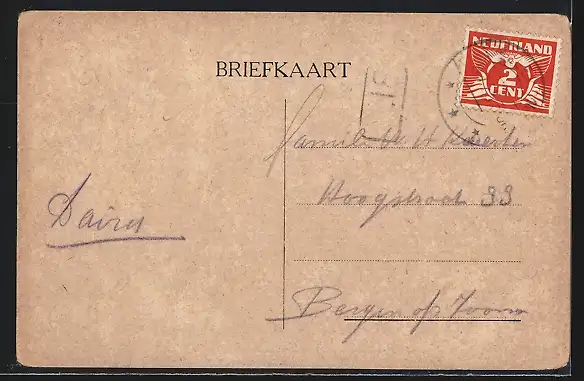 NEDERLAND
2
CENT
BRIEFKAART
Familie
Hoogstraat 33
Bergen op Zoom
Daira